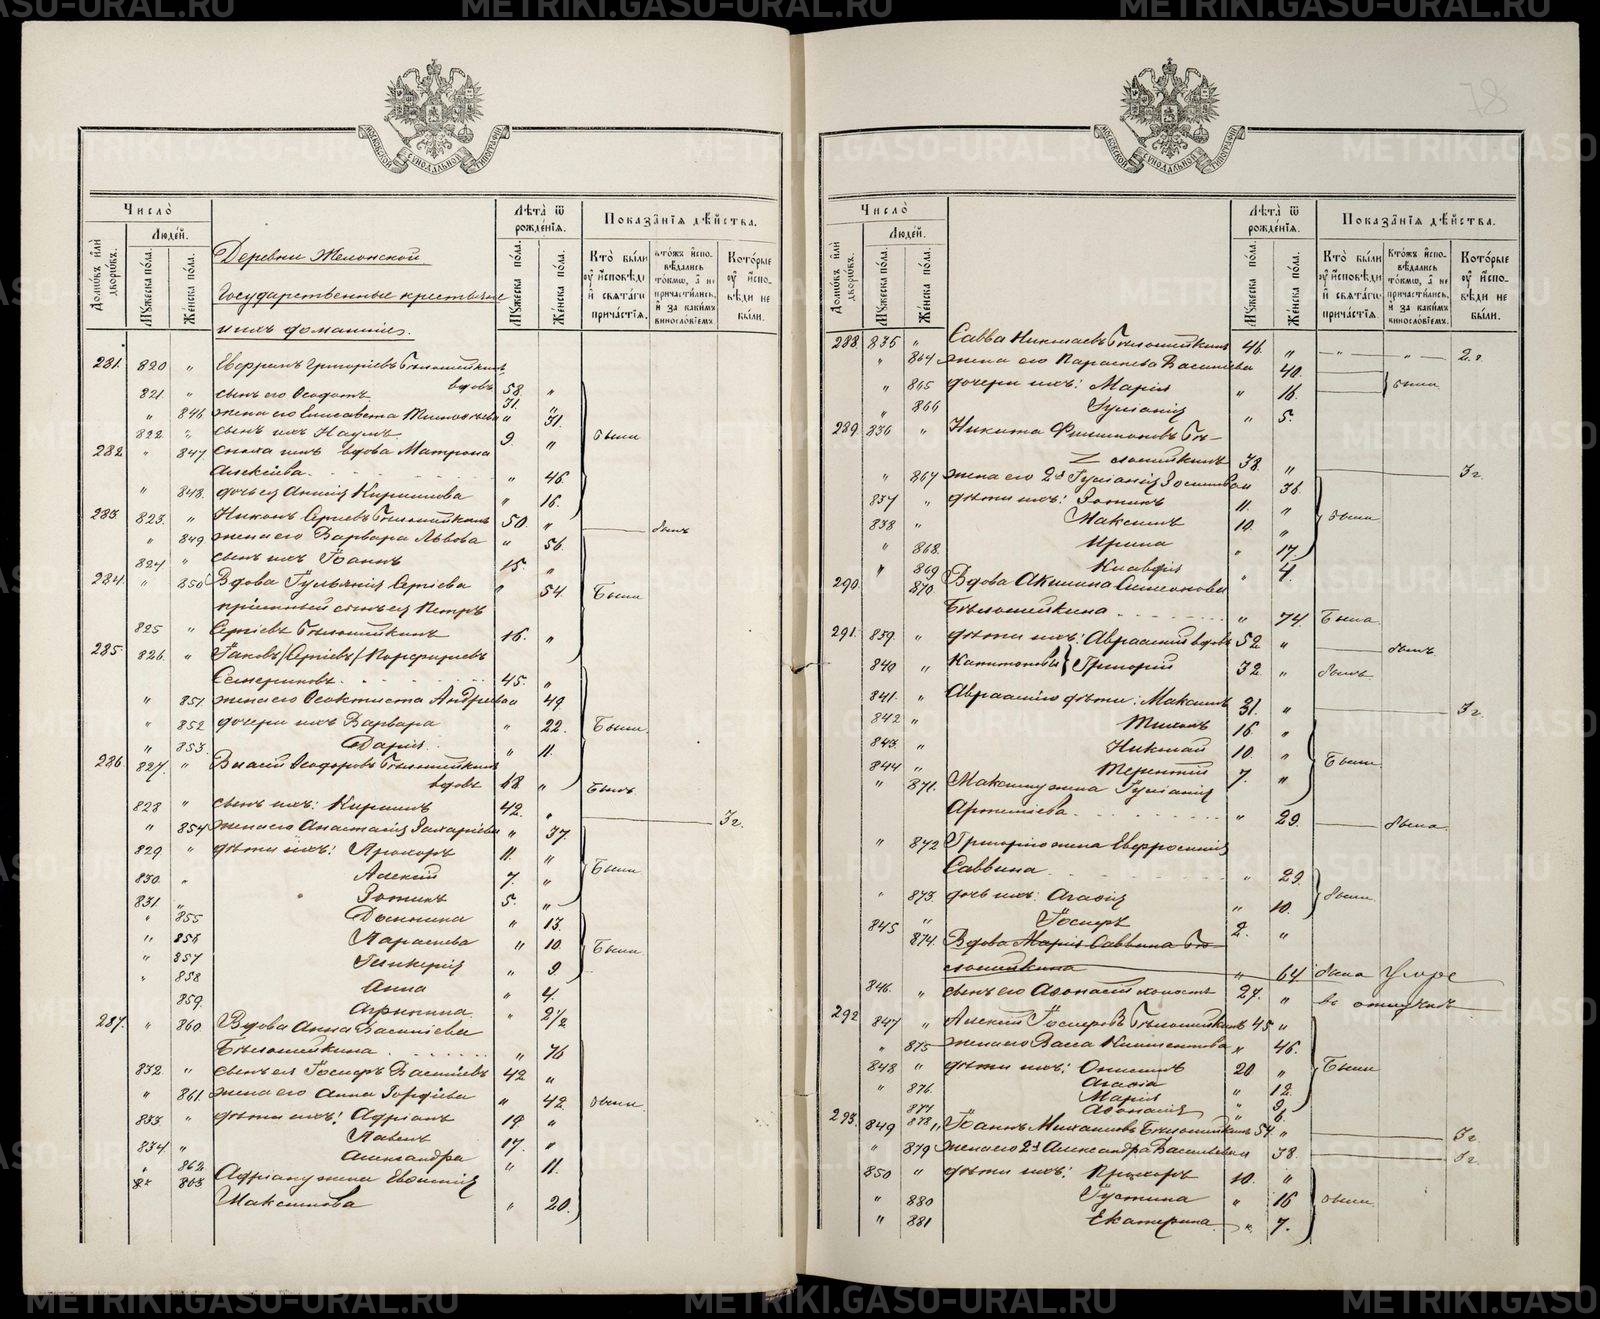 METRIKI.GASO-URAL.RU
78
МОСКОВСКОЙ СѴНОДАЛЬНОЙ ТИПОГРАФІИ
Число̀
Людей.
Домѡвъ или дворѡвъ.
Мꙋжеска пола.
Женска пола.
Деревни Желонской
государственные крестьяне
и ихъ домашніе.
Лѣта ѿ рожденїя.
Мꙋжеска пола.
Женска пола.
Показанїя дѣйства.
Кто были ꙋ исповѣди и свѧтагѡ причастїя.
Ктожъ исповѣдались токмѡ, а не причастились, и за какимъ винословїемъ.
Которые ꙋ исповѣди не были.
281 820 " Евфремъ Григоріевъ Бѣлошейкинъ
вдовъ 58 "
821 " сынъ его Ѳеодотъ 31 "
" 846 жена его Елисавета Тимоѳѣева " 31.
822 " сынъ ихъ Наумъ 9 " были
282 " 847 сноха ихъ вдова Матрона
Алексѣева " 46
" 848 дочь ея Аннія Кириллова " 16.
283 823 " Никонъ Сергіевъ Бѣлошейкинъ 50 " былъ
" 849 жена его Варвара Львова " 56.
824 " сынъ ихъ Іоаннъ 15 "
284 " 850 Вдова Іульянія Сергіева " 54. Были
пріемный сынъ ея Петръ
825 " Сергіевъ Бѣлошейкинъ 16. "
285 826 " Іаковъ /Сергіевъ/ Порфиріевъ
Семериковъ 45. "
" 851 жена его Ѳеоктиста Андреева 49
" 852 дочери ихъ Варвара " 22. Были
" 853 Дарія " 11.
286 827 " Власій Ѳеодоровъ Бѣлошейкинъ
вдовъ 68 " Былъ
828 " сынъ ихъ: Кириллъ 42. " 3 г.
" 854 жена его Анастасія Захаріева " 37.
829 " дѣти ихъ: Прохоръ 11. "
830 " Алексій 7. " Были
831 " Зотикъ 5. "
" 855 Домнина " 13.
" 856 Параскева " 10 Были
" 857 Гликерія " 9
" 858 Анна " 4.
859 Агрипина " 2½
287. " 860 Вдова Анна Василіева
Бѣлошейкина " 76
832 " сынъ ея Іосифъ Василіевъ 42 "
" 861 жена его Анна Гордѣева " 42. были
833 " дѣти ихъ: Адріанъ 19 "
834 " Павелъ 17. "
" 862 Александра " 11.
" 863 Адріану жена Евѳимія
Максимова " 20.
Число̀
Людей.
Домѡвъ или дворѡвъ.
Мꙋжеска пола.
Женска пола.
Лѣта ѿ рожденїя.
Мꙋжеска пола.
Женска пола.
Показанїя дѣйства.
Кто были ꙋ исповѣди и свѧтагѡ причастїя.
Ктожъ исповѣдались токмѡ, а не причастились, и за какимъ винословїемъ.
Которые ꙋ исповѣди не были.
288 835 " Савва Николаевъ Бѣлошейкинъ 46. " — " — " — 2 г
" 864 жена его Параскева Васильева 40.
" 865 дочери ихъ: Марія " 16. были
" 866 Іуліанія " 5.
289 836 " Никита Филимоновъ Бѣ-
лошейкинъ 38. " 3 г.
" 867 жена его 2я Іуліанія Зосимова 36.
837 " дѣти ихъ: Зотикъ 11. "
838 " Максимъ 10. " были
" 868 Ирина " 17.
" 869 Клавдія " 4.
290 870 Вдова Акилина Симеонова
Бѣлошейкина " 74. Была
291. 839 " дѣти ихъ: Авраамій вдовъ 52 " былъ
840 " Капитоновы } Григорій 32. " былъ
841 " Авраамію дѣти: Максимъ 31. " 3 г
842 " Тихонъ 16 "
843 " Николай 10. " Были
844 " Терентій 7. "
" 871. Максиму жена Іуліанія
Артеміева " 29. была
" 872 Григорію жена Евфросинія
Саввина " 29.
" 873 дочь ихъ: Агаѳія " 10. были
845 " Іосифъ 2. "
874. Вдова Марія Саввина Бѣ-
лошейкина " 64 была умре
846 " сынъ его Аѳонасій холостъ 27. " въ отлучкѣ
292 847 " Алексій Іосифовъ Бѣлошейкинъ 45 "
" 875 жена его Васса Климентова " 46.
848 " дѣти ихъ: Онисимъ 20 " Были
" 876 Агаѳія " 12
" 877 Марія " 9.
878 Аѳонасія " 6.
293. 849 " Іоаннъ Михаиловъ Бѣлошейкинъ 54. " 3 г
" 879 жена его 2я Александра Васильева 38. 3 г.
850 " дѣти ихъ: Прохоръ 10. "
" 880 Іустина " 16 были
" 881 Екатерина " 7.